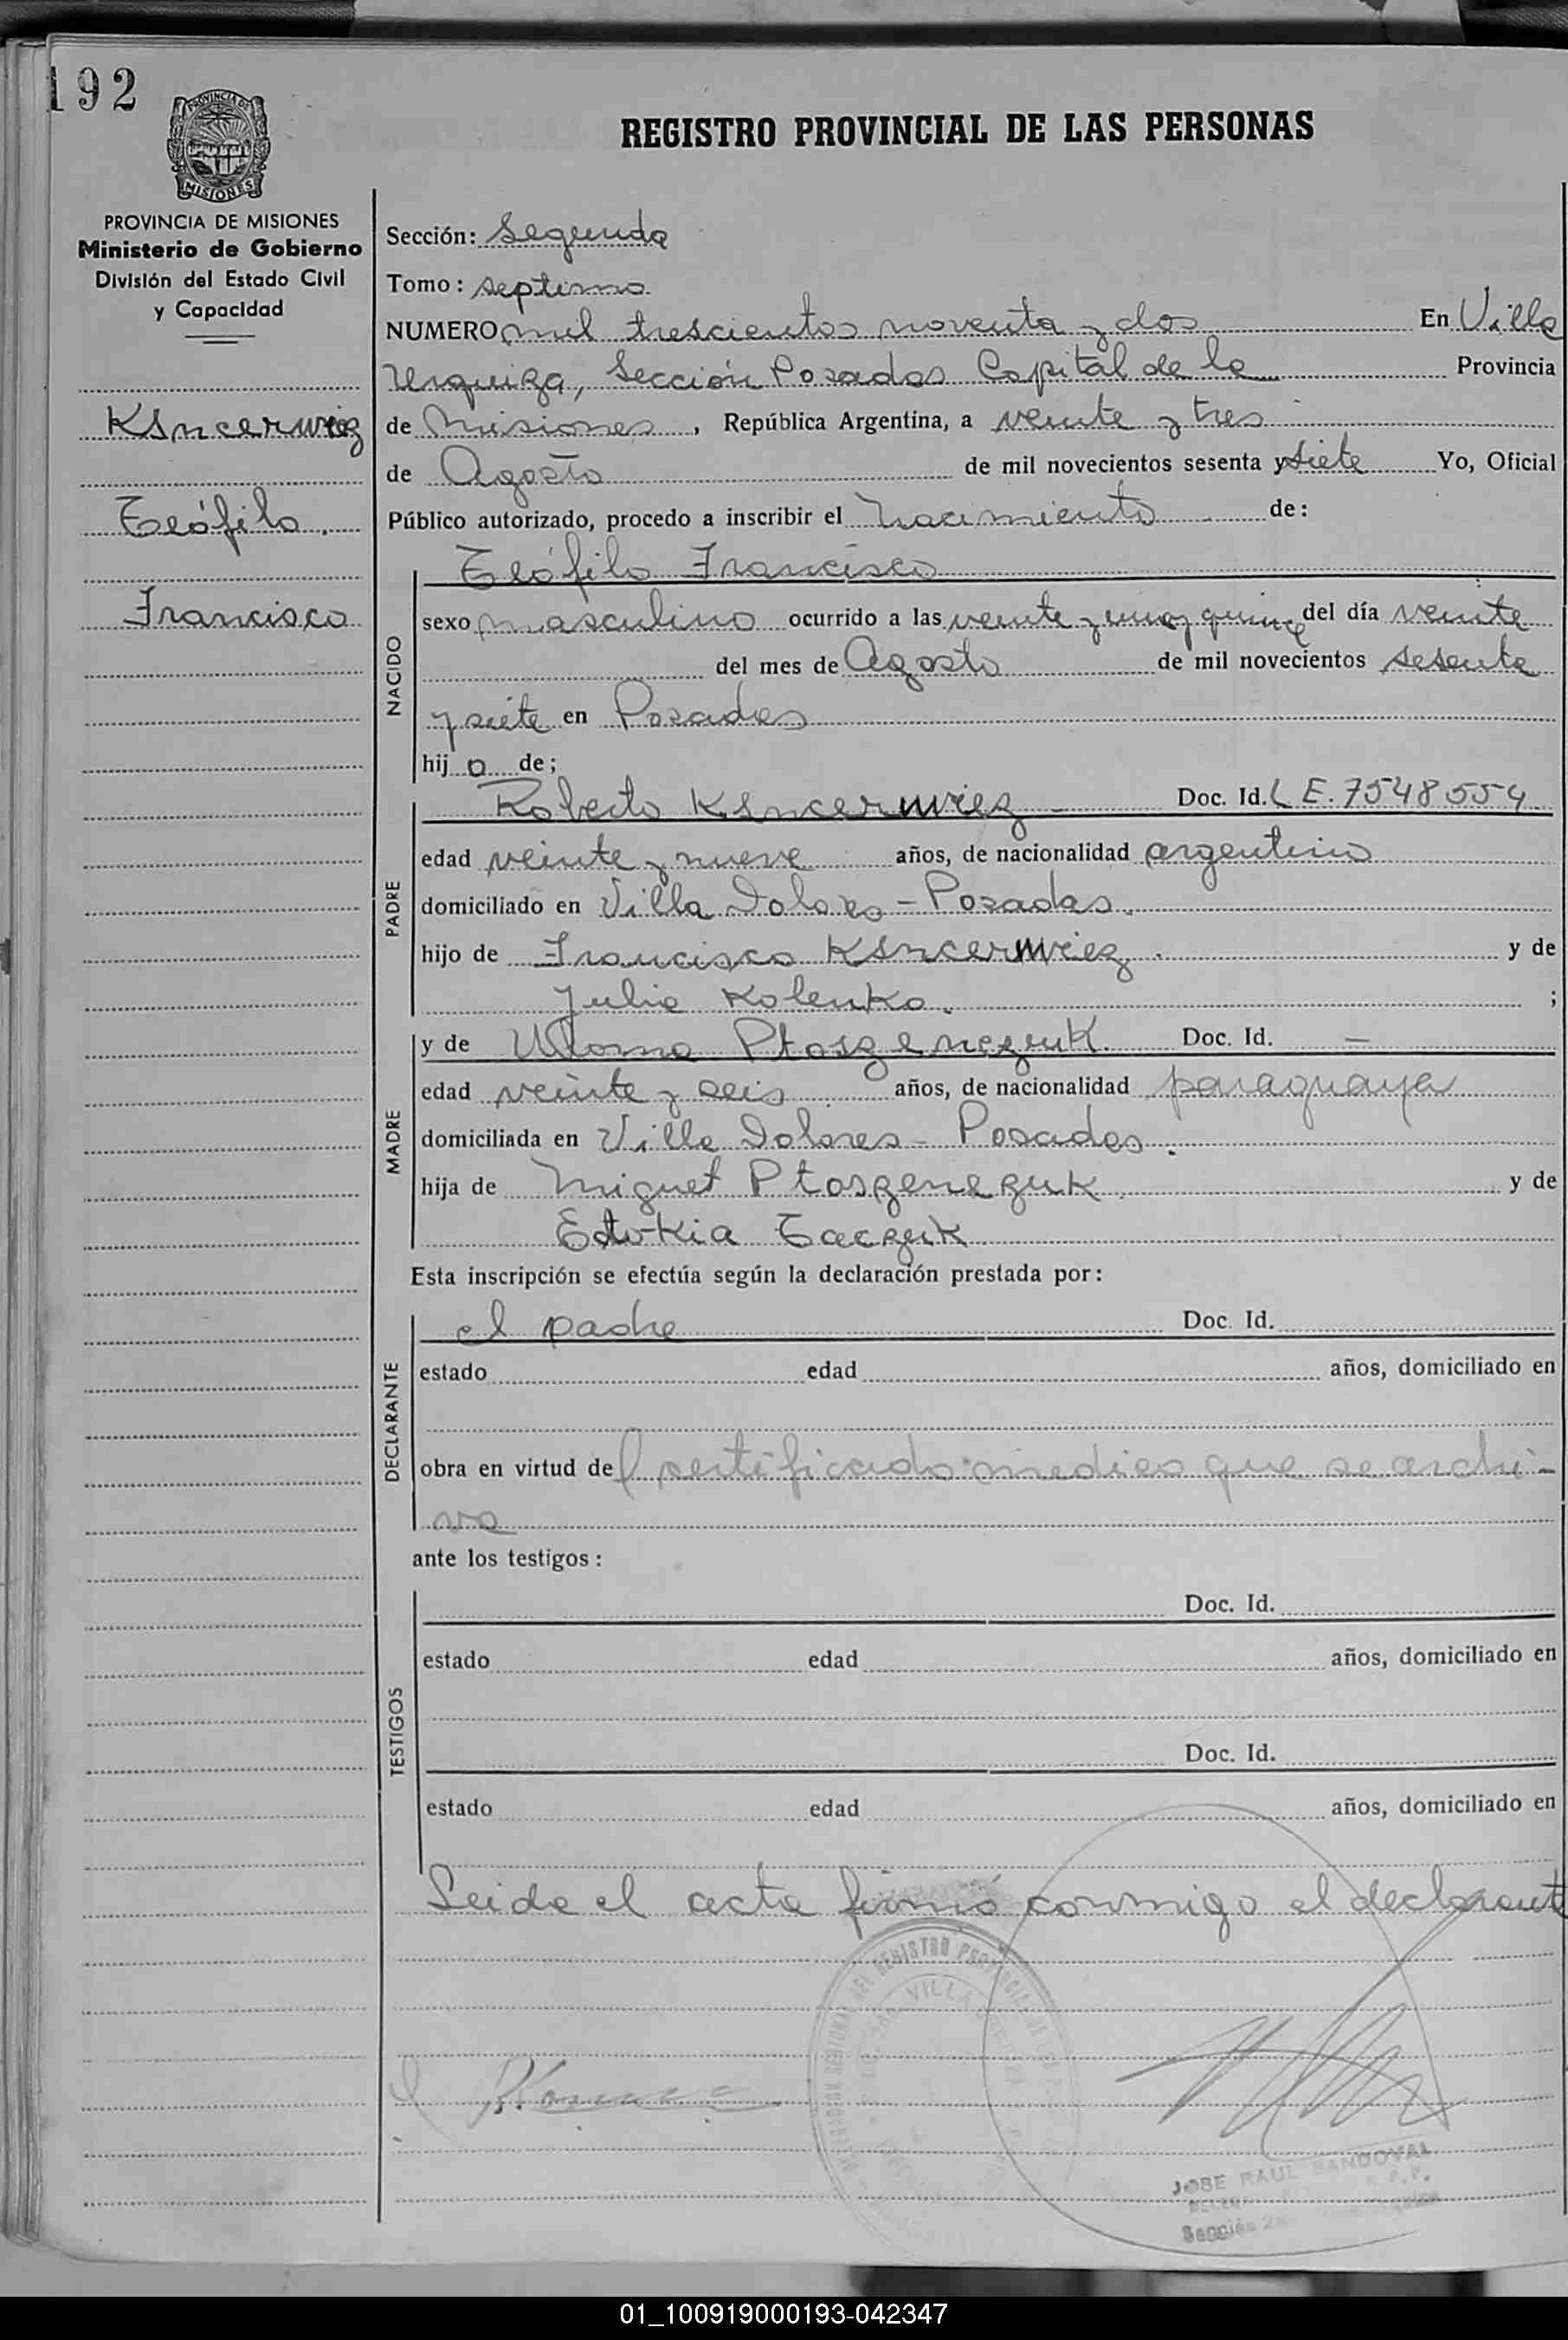 192
PROVINCIA DE
MISIONES
REGISTRO PROVINCIAL DE LAS PERSONAS
PROVINCIA DE MISIONES
Ministerio de Gobierno
División del Estado Civil
y Capacidad
Ksncerwiez
Teófilo.
Francisco
Sección: Segunda
Tomo: septimo
NUMERO mil trescientos noventa y dos En Villa
Urquiza, Sección Posadas Capital de la Provincia
de Misiones, República Argentina, a veinte y tres
de Agosto de mil novecientos sesenta y siete Yo, Oficial
Público autorizado, procedo a inscribir el nacimiento de:
NACIDO
Teófilo Francisco
sexo masculino ocurrido a las veinte y una y quince del día veinte
del mes de Agosto de mil novecientos sesenta
y siete en Posadas
hijo de;
PADRE
Roberto Ksncerwiez Doc. Id. L E. 7548554
edad veinte y nueve años, de nacionalidad argentino
domiciliado en Villa Dolores - Posadas.
hijo de Francisco Ksncerwiez. y de
Julia Kolenko. ;
MADRE
y de Ptaszenezuk. Doc. Id. —
edad veinte y seis años, de nacionalidad paraguaya
domiciliada en Villa Dolores - Posadas.
hija de Miguel Ptoszenezuk y de
Taczuk
Esta inscripción se efectúa según la declaración prestada por:
DECLARANTE
el padre Doc. Id.
estado edad años, domiciliado en
obra en virtud del certificado medico que se archi-
va
ante los testigos:
TESTIGOS
Doc. Id.
estado edad años, domiciliado en
Doc. Id.
estado edad años, domiciliado en
Leida el acta firmó conmigo el declarante
DEL REGISTRO
VILLA
JOSE RAUL SANDOVAL
Sección
01_100919000193-042347